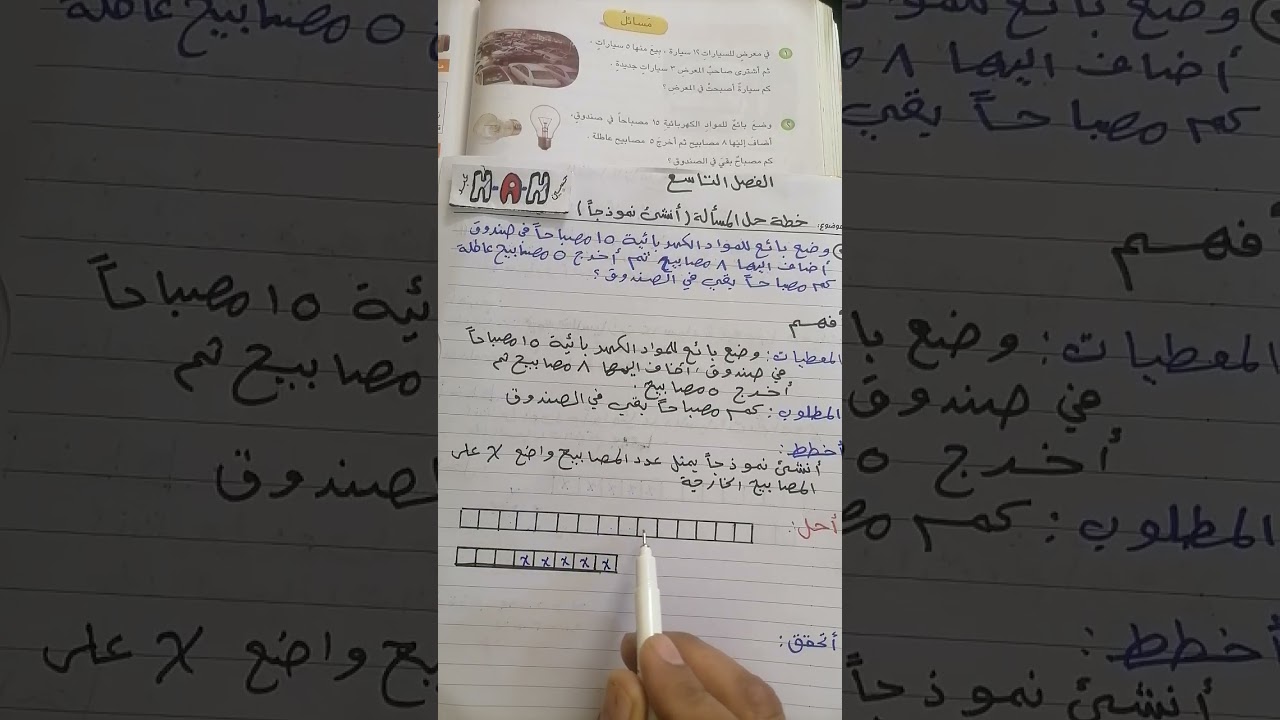 مسائل
١ في معرض للسيارات ١٢ سيارة ، بيع منها ٥ سيارات .
ثم اشترى صاحب المعرض ٣ سيارات جديدة .
كم سيارة أصبحت في المعرض ؟
٢ وضع بائع للمواد الكهربائية ١٥ مصباحاً في صندوق،
أضاف إليها ٨ مصابيح ثم أخرج ٥ مصابيح عاطلة .
كم مصباح بقي في الصندوق ؟
الفصل التاسع
H-A-H
خطة حل المسألة (أنشئ نموذجاً)
وضع بائع للمواد الكهربائية ١٥ مصباحاً في صندوق
أضاف اليها ٨ مصابيح ثم أخرج ٥ مصابيح عاطلة
كم مصباحاً بقي في الصندوق ؟
أفهم
المعطيات : وضع بائع للمواد الكهربائية ١٥ مصباحاً
في صندوق ، أضاف اليها ٨ مصابيح ثم
أخرج ٥ مصابيح .
المطلوب : كم مصباحاً بقي في الصندوق
أخطط :
أنشئ نموذجاً يمثل عدد المصابيح واضع x على
المصابيح الخارجة
أحل :
x x x x x
أتحقق :